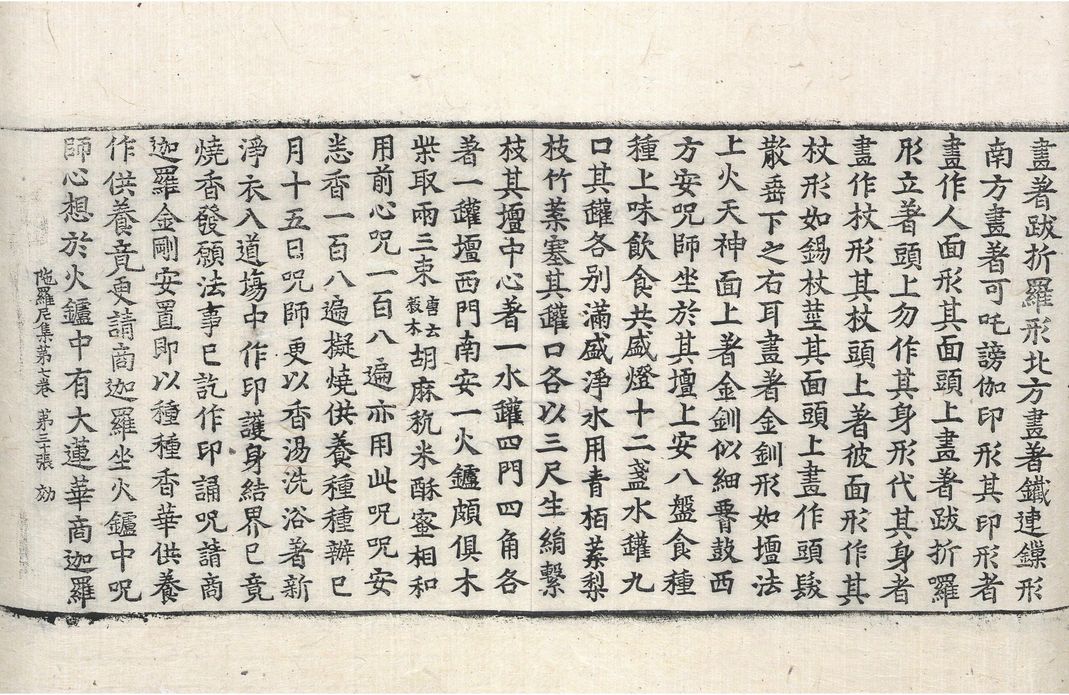 畫著跋折羅形北方畫著鐵連鏁形
南方畫著可吒謗伽印形其印形者
畫作人面形其面頭上畫著跋折囉
形立著頭上勿作其身形代其身者
畫作杖形其杖頭上著彼面形作其
杖形如錫杖莖其面頭上畫作頭髮
散垂下之右耳畫著金釧形如壇法
上火天神面上著金釧似細霄鼓西
方安呪師坐於其壇上安八盤食種
種上味飲食共盛燈十二盞水罐九
口其罐各別滿盛淨水用青栢葉梨
枝竹葉塞其罐口各以三尺生絹繫
枝其壇中心著一水罐四門四角各
著一罐壇西門南安一火鑪頗俱木
柴取兩三束唐云穀木胡麻秔米酥蜜相和
用前心呪一百八遍亦用此呪呪安
悉香一百八遍擬燒供養種種辦已
月十五日呪師更以香湯洗浴著新
淨衣入道場中作印護身結界已竟
燒香發願法事已訖作印誦呪請商
迦羅金剛安置即以種種香華供養
作供養竟更請商迦羅坐火鑪中呪
師心想於火鑪中有大蓮華商迦羅
陁羅尼集第七卷 第三十張 劾